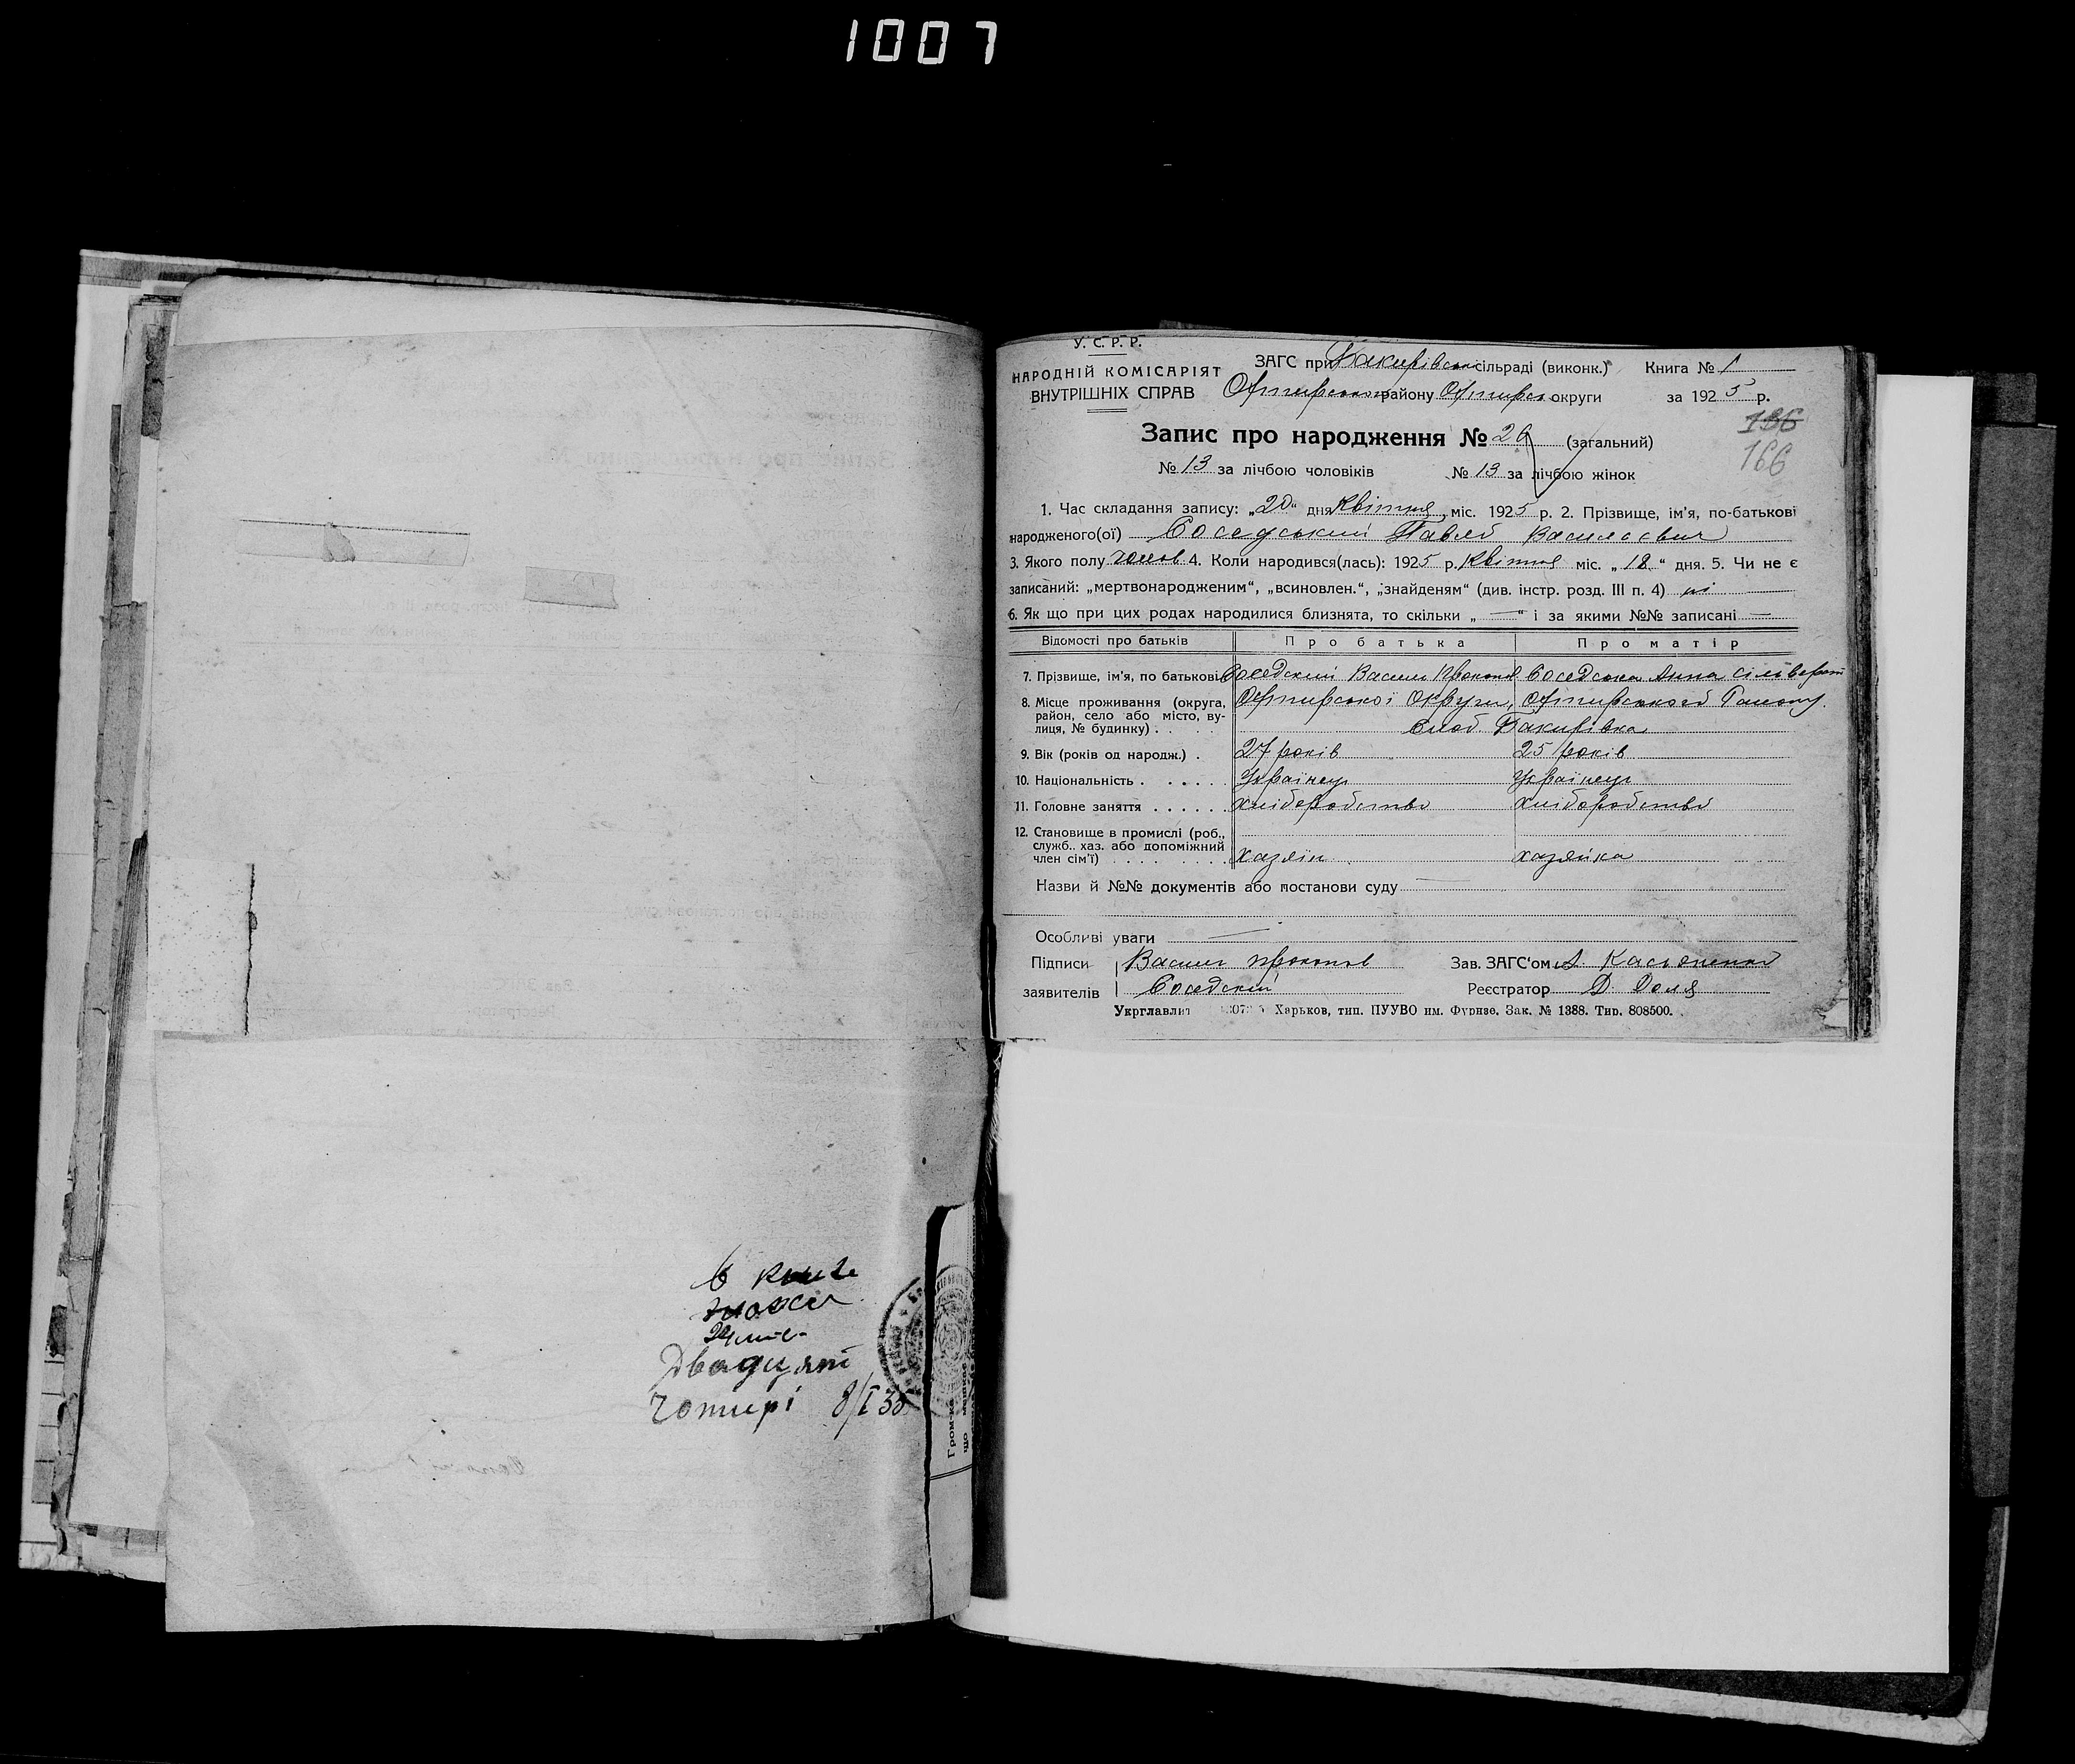 1007
У. С. Р. Р.
НАРОДНІЙ КОМІСАРІЯТ
ВНУТРІШНІХ СПРАВ
ЗАГС при Бакирівській сільраді (виконк.)
Книга № 1
Охтирського району Охтирсь округи
за 1925 р.
136
166
Запис про народження № 26 (загальний)
№ 13 за лічбою чоловіків № 13 за лічбою жінок
1. Час складання запису: „20" дня Квітня міс. 1925 р. 2. Прізвище, ім'я, по-батькові
народженого(ої) Соседський Павло Васильєвич
3. Якого полу чолов 4. Коли народився(лась): 1925 р. Квітня міс. „18" дня. 5. Чи не є
записаний: „мертвонародженим", „всиновлен.", „знайденям" (див. інстр. розд. III п. 4) ні
6. Як що при цих родах народилися близнята, то скільки „—" і за якими №№ записані —
Відомості про батьків Про батька Про матір
7. Прізвище, ім'я, по батькові Соседский Васил Прокопов Соседська Анна Сільверст
8. Місце проживання (округа, район, село або місто, вулиця, № будинку) Охтирської Округи, Охтирського
Слоб. Бакирівка
9. Вік (років од народж.) 27 років 25 років
10. Національність Українец Українец
11. Головне заняття хліборобство хліборобство
12. Становище в промислі (роб.,
служб., хаз. або допоміжний
член сім'ї) хазяїн хазяйка
Назви й №№ документів або постанови суду —
Особливі уваги —
Підписи Василь Прокопов Зав. ЗАГС'ом А. Касьяненко
заявителів Соседский Реєстратор Д. Доля
Укрглавлит Харьков, тип. ПУУВО им. Фрунзе. Зак. № 1388. Тир. 808500.
В книге
Двадцят
чотирі 8/I 35
Гром-ка
що мешкає